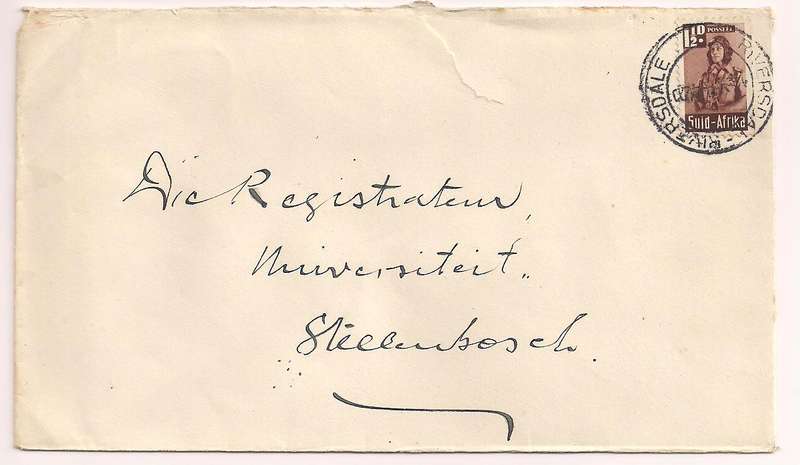 1½D. POSSEËL
Suid-Afrika
RIVERSDALE - RIVERSDALE
Die Registrateur,
Universiteit.
Stellenbosch.